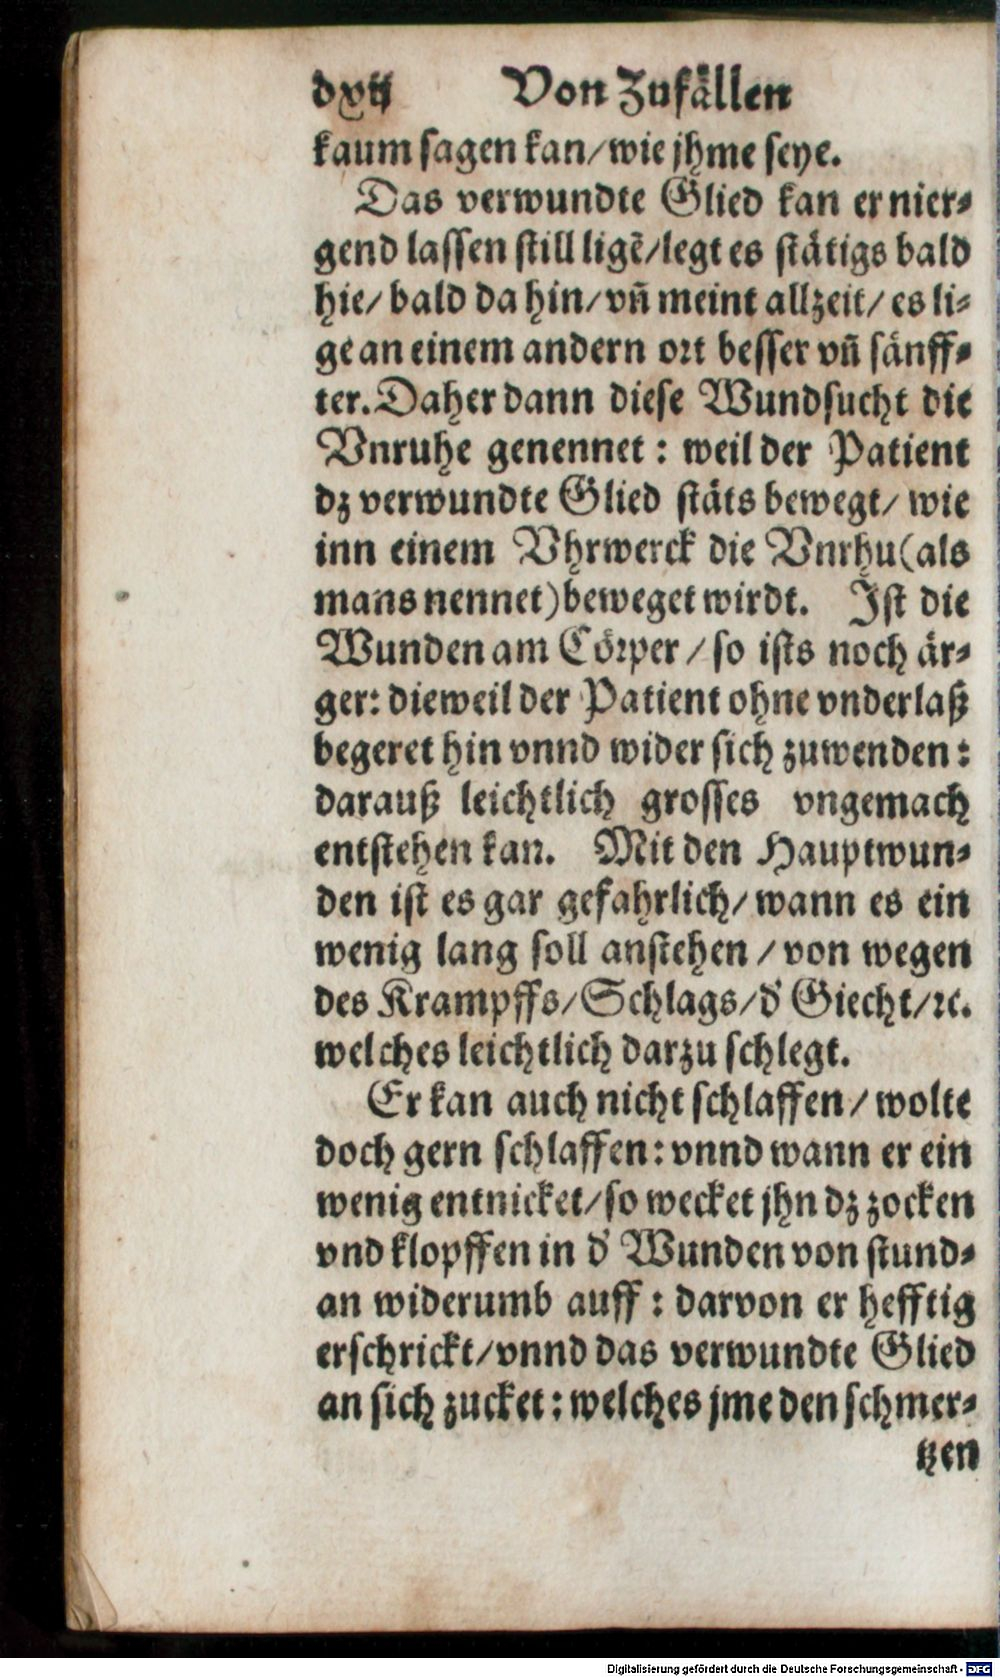 dxij Von Zufällen
kaum sagen kan/wie jhme seye.
Das verwundte Glied kan er nier⸗
gend lassen still ligē/legt es stätigs bald
hie/ bald da hin/ vñ meint allzeit/ es li⸗
ge an einem andern ort besser vñ sänff⸗
ter. Daher dann diese Wundsucht die
Vnruhe genennet: weil der Patient
dz verwundte Glied stäts bewegt/ wie
inn einem Vhrwerck die Vnrhu(als
mans nennet)beweget wirdt. Ist die
Wunden am Cörper / so ists noch är⸗
ger: dieweil der Patient ohne vnderlaß
begeret hin vnnd wider sich zuwenden:
darauß leichtlich grosses vngemach
entstehen kan. Mit den Hauptwun⸗
den ist es gar gefahrlich/ wann es ein
wenig lang soll anstehen / von wegen
des Krampffs/Schlags/d' Giecht/ꝛc.
welches leichtlich darzu schlegt.
Er kan auch nicht schlaffen/ wolte
doch gern schlaffen: vnnd wann er ein
wenig entnicket/so wecket jhn dz zocken
vnd klopffen in d' Wunden von stund⸗
an widerumb auff: darvon er hefftig
erschrickt/vnnd das verwundte Glied
an sich zucket: welches jme den schmer⸗
tzen
Digitalisierung gefördert durch die Deutsche Forschungsgemeinschaft - DFG